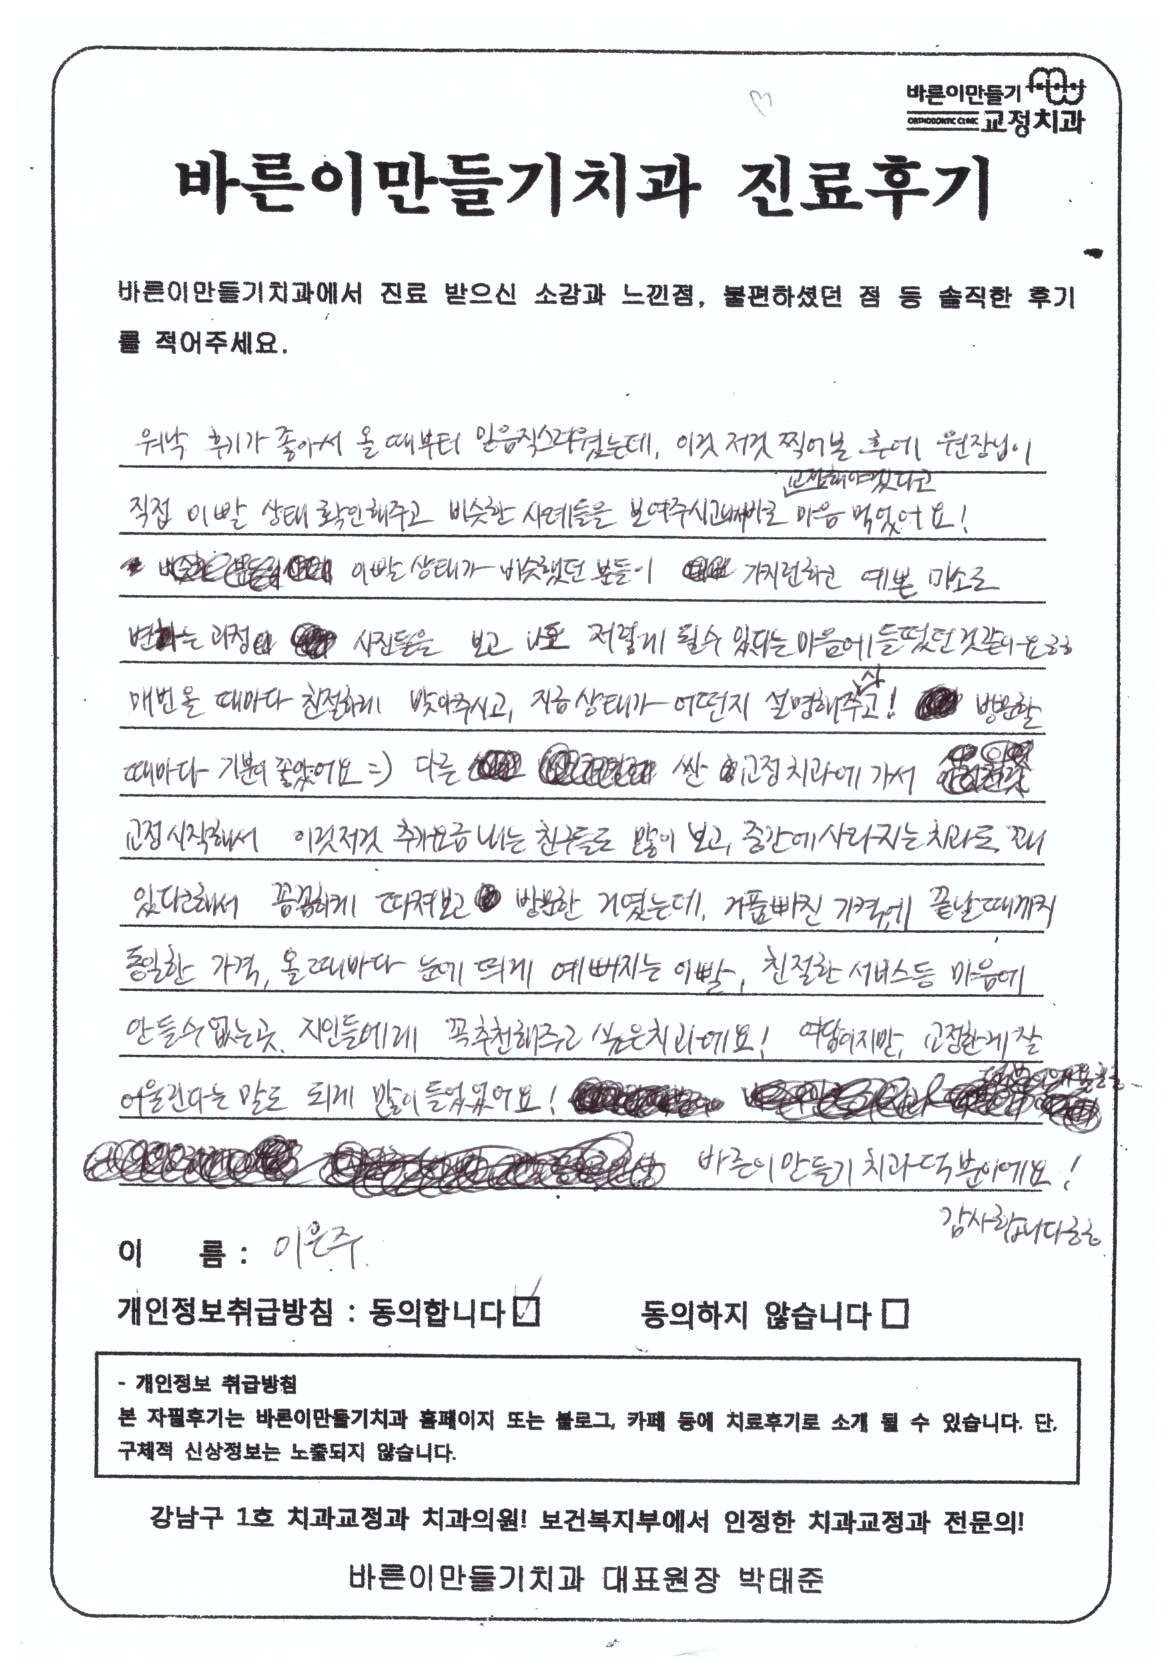 바른이만들기
ORTHODONTIC CLINIC 교정치과
바른이만들기치과 진료후기
바른이만들기치과에서 진료 받으신 소감과 느낀점, 불편하셨던 점 등 솔직한 후기
를 적어주세요.
워낙 후기가 좋아서 올 때부터 믿음직스러웠는데, 이것 저것 찍어본 후에 원장님이
교정해야겠다고
직접 이빨 상태 확인해주고 비슷한 사례들을 보여주시고 바로 마음 먹었어요!
이빨 상태가 비슷했던 분들이 가지런하고 예쁜 미소로
변하는 과정 사진들을 보고 나도 저렇게 될수 있다는 마음에 들떴던것같아요ㅎㅎ
매번 올 때마다 친절하게 맞아주시고, 지금 상태가 어떤지 설명해주고! 방문할
때마다 기분이 좋았어요 =) 다른 싼 교정치과에 가서
교정시작해서 이것저것 추가요금 내는 친구들도 많이 보고, 중간에 사라지는 치과도 꽤나
있다고해서 꼼꼼하게 따져보고 방문한 거였는데, 거품빠진 가격에 끝날때까지
동일한 가격, 올 때마다 눈에 띄게 예뻐지는 이빨, 친절한 서비스등 마음에
안들수 없는곳, 지인들에게 꼭추천해주고 싶은치과에요! 여담이지만, 교정한게 잘
어울린다는 말도 되게 많이 들었었어요!
바른이만들기 치과 덕분이에요!
감사합니다ㅎㅎ
이 름 : 이은주
개인정보취급방침 : 동의합니다 ☑ 동의하지 않습니다 □
- 개인정보 취급방침
본 자필후기는 바른이만들기치과 홈페이지 또는 블로그, 카페 등에 치료후기로 소개 될 수 있습니다. 단,
구체적 신상정보는 노출되지 않습니다.
강남구 1호 치과교정과 치과의원! 보건복지부에서 인정한 치과교정과 전문의!
바른이만들기치과 대표원장 박태준